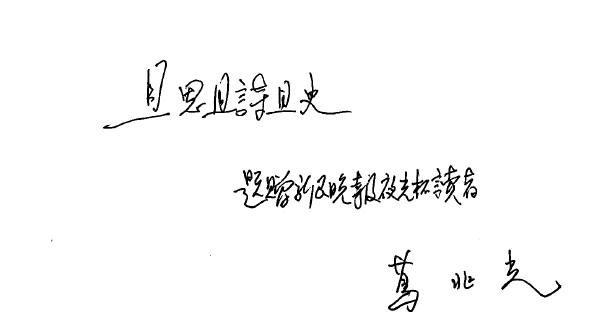 且思且读且史
題贈新民晚報夜光杯讀者
葛兆光